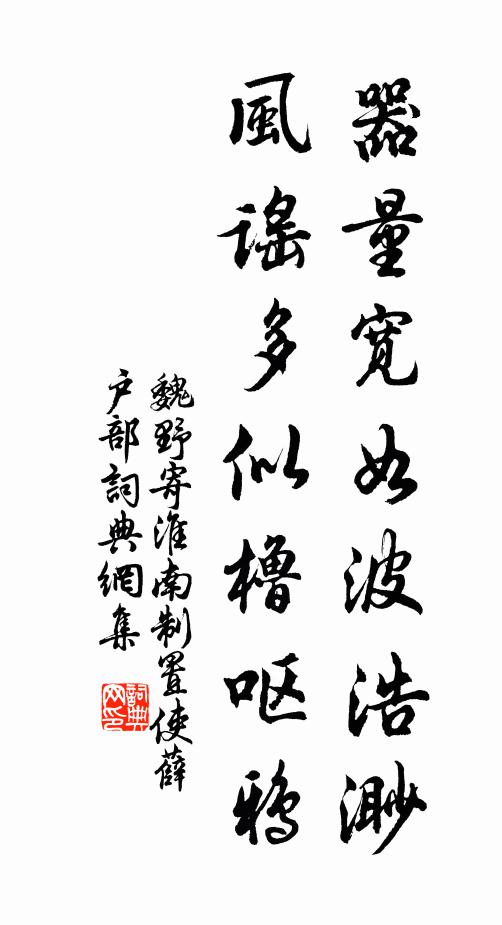 器量宽如波浩渺
風謠多似櫓呕鴉
魏野寄淮南制置使薛
户部詞典網集
詞典網印